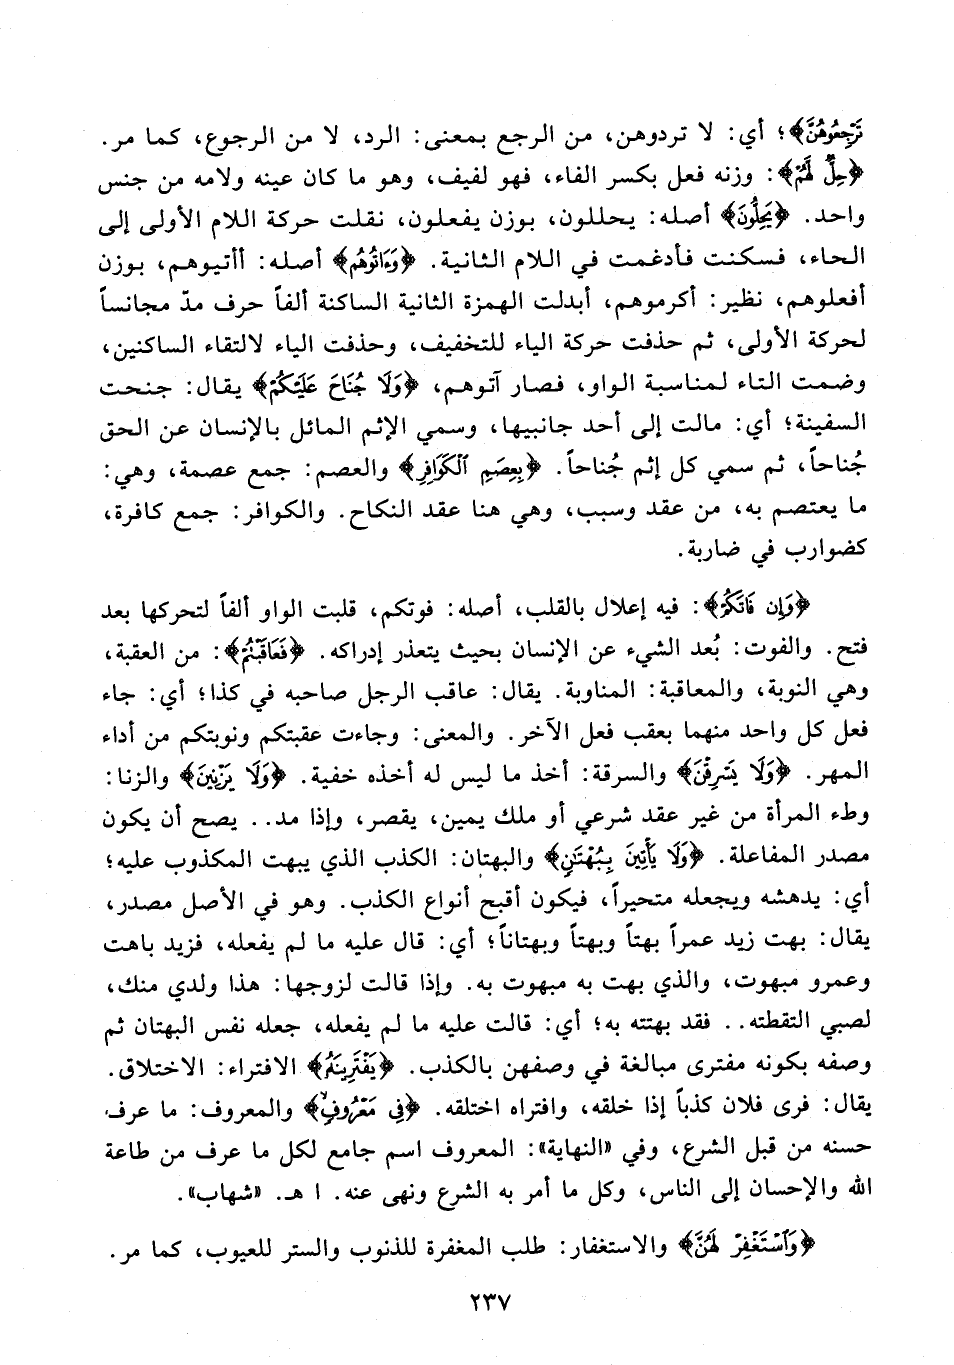 تَرْجِعُوهُنَّ﴾؛ أي: لا تردوهن، من الرجع بمعنى: الرد، لا من الرجوع، كما مر.
﴿حِلٌّ لَّهُمْ﴾: وزنه فعل بكسر الفاء، فهو لفيف، وهو ما كان عينه ولامه من جنس
واحد. ﴿يَحِلُّونَ﴾ أصله: يحللون، بوزن يفعلون، نقلت حركة اللام الأولى إلى
الحاء، فسكنت فأدغمت في اللام الثانية. ﴿وَءَاتُوهُم﴾ أصله: أأتيوهم، بوزن
أفعلوهم، نظير: أكرموهم، أبدلت الهمزة الثانية الساكنة ألفاً حرف مدّ مجانساً
لحركة الأولى، ثم حذفت حركة الياء للتخفيف، وحذفت الياء لالتقاء الساكنين،
وضمت التاء لمناسبة الواو، فصار آتوهم، ﴿وَلَا جُنَاحَ عَلَيْكُمْ﴾ يقال: جنحت
السفينة؛ أي: مالت إلى أحد جانبيها، وسمي الإثم المائل بالإنسان عن الحق
جُناحاً، ثم سمي كل إثم جُناحاً. ﴿بِعِصَمِ ٱلْكَوَافِرِ﴾ والعصم: جمع عصمة، وهي:
ما يعتصم به، من عقد وسبب، وهي هنا عقد النكاح. والكوافر: جمع كافرة،
كضوارب في ضاربة.
﴿وَإِن فَاتَكُمْ﴾: فيه إعلال بالقلب، أصله: فوتكم، قلبت الواو ألفاً لتحركها بعد
فتح. والفوت: بُعد الشيء عن الإنسان بحيث يتعذر إدراكه. ﴿فَعَاقَبْتُمْ﴾: من العقبة،
وهي النوبة، والمعاقبة: المناوبة. يقال: عاقب الرجل صاحبه في كذا؛ أي: جاء
فعل كل واحد منهما بعقب فعل الآخر. والمعنى: وجاءت عقبتكم ونوبتكم من أداء
المهر. ﴿وَلَا يَسْرِقْنَ﴾ والسرقة: أخذ ما ليس له أخذه خفية. ﴿وَلَا يَزْنِينَ﴾ والزنا:
وطء المرأة من غير عقد شرعي أو ملك يمين، يقصر، وإذا مد.. يصح أن يكون
مصدر المفاعلة. ﴿وَلَا يَأْتِينَ بِبُهْتَٰنٍ﴾ والبهتان: الكذب الذي يبهت المكذوب عليه؛
أي: يدهشه ويجعله متحيراً، فيكون أقبح أنواع الكذب. وهو في الأصل مصدر،
يقال: بهت زيد عمراً بهتاً وبهتاً وبهتاناً؛ أي: قال عليه ما لم يفعله، فزيد باهت
وعمرو مبهوت، والذي بهت به مبهوت به. وإذا قالت لزوجها: هذا ولدي منك،
لصبي التقطته.. فقد بهتته به؛ أي: قالت عليه ما لم يفعله، جعله نفس البهتان ثم
وصفه بكونه مفترى مبالغة في وصفهن بالكذب. ﴿يَفْتَرِينَهُ﴾ الافتراء: الاختلاق.
يقال: فرى فلان كذباً إذا خلقه، وافتراه اختلقه. ﴿فِي مَعْرُوفٍ﴾ والمعروف: ما عرف
حسنه من قبل الشرع، وفي «النهاية»: المعروف اسم جامع لكل ما عرف من طاعة
الله والإحسان إلى الناس، وكل ما أمر به الشرع ونهى عنه. ا هـ. «شهاب».
﴿وَٱسْتَغْفِرْ لَهُنَّ﴾ والاستغفار: طلب المغفرة للذنوب والستر للعيوب، كما مر.
٢٣٧